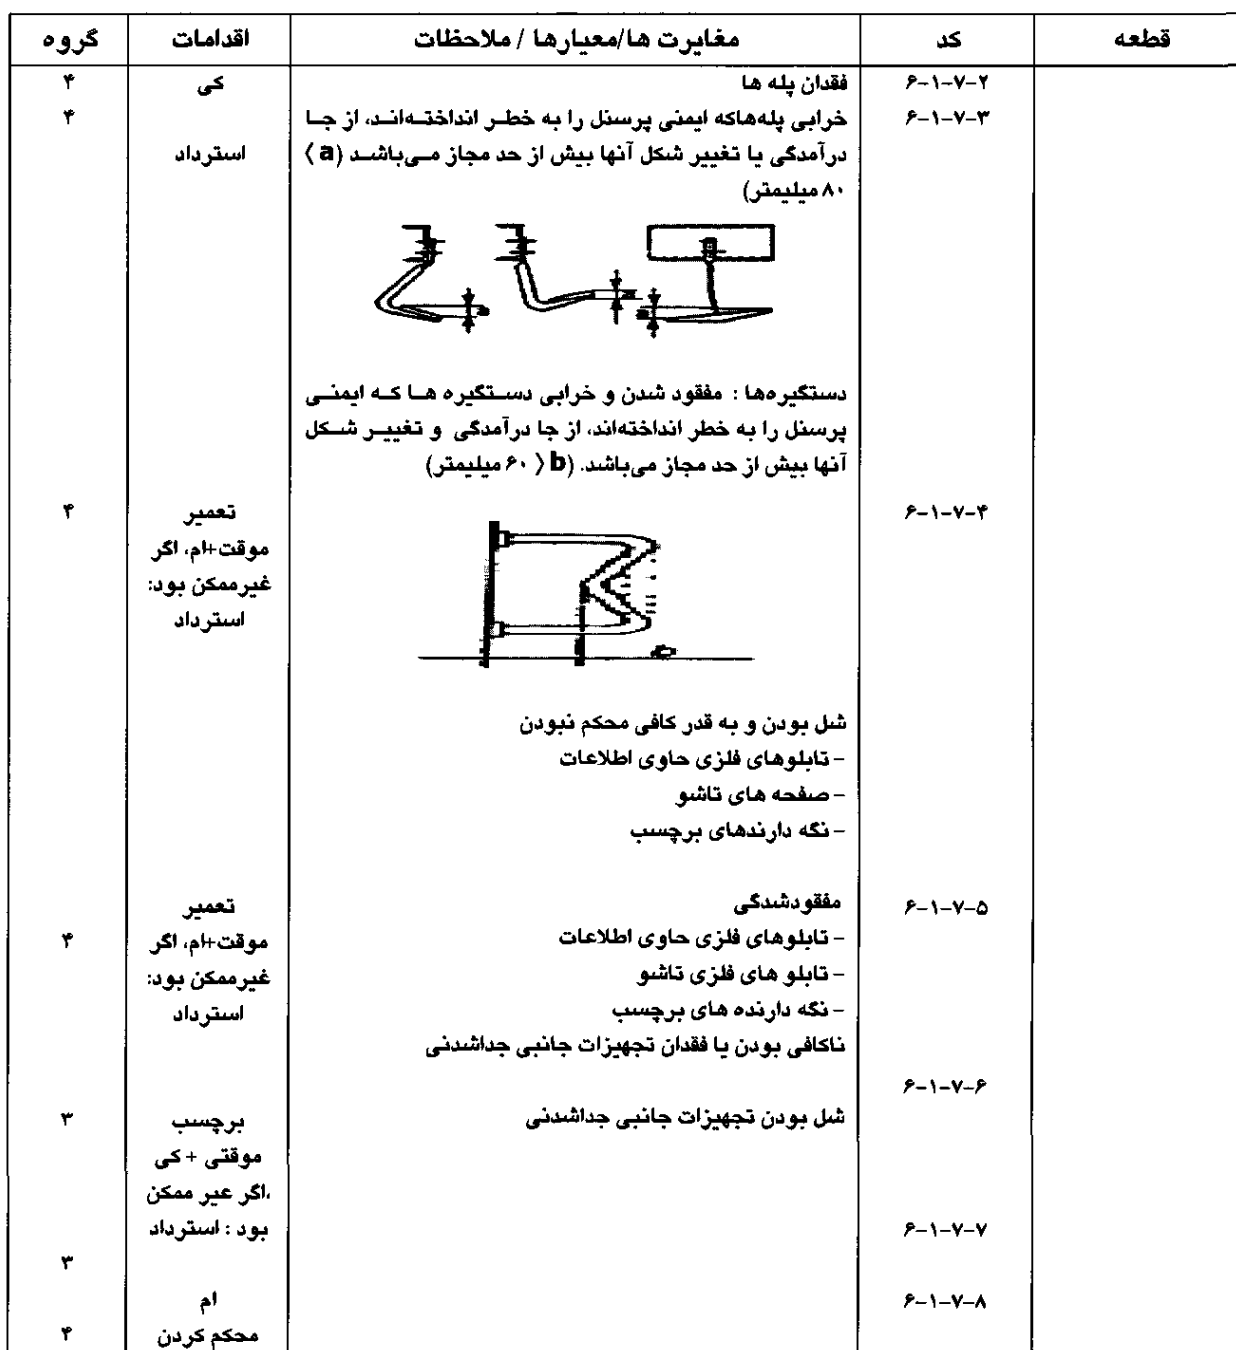 قطعه کد مغایرت ها/معیارها / ملاحظات اقدامات گروه
۶-۱-۷-۲ فقدان پله ها کی ۴
۶-۱-۷-۳ خرابی پله‌هاکه ایمنی پرسنل را به خطر انداخته‌اند، از جا ۴
درآمدگی یا تغییر شکل آنها بیش از حد مجاز می‌باشد (a ⟩ استرداد
۸۰ میلیمتر)
a a a
دستگیره‌ها : مفقود شدن و خرابی دستگیره ها که ایمنی
پرسنل را به خطر انداخته‌اند، از جا درآمدگی و تغییر شکل
آنها بیش از حد مجاز می‌باشد. (b ⟩ ۶۰ میلیمتر)
۶-۱-۷-۴ تعمیر ۴
موقت+ام، اگر
غیرممکن بود:
استرداد
شل بودن و به قدر کافی محکم نبودن
- تابلوهای فلزی حاوی اطلاعات
- صفحه های تاشو
- نگه دارندهای برچسب
۶-۱-۷-۵ مفقودشدگی تعمیر
- تابلوهای فلزی حاوی اطلاعات موقت+ام، اگر ۴
- تابلو های فلزی تاشو غیرممکن بود:
- نگه دارنده های برچسب استرداد
ناکافی بودن یا فقدان تجهیزات جانبی جداشدنی
۶-۱-۷-۶
شل بودن تجهیزات جانبی جداشدنی برچسب ۳
موقتی + کی
،اگر عیر ممکن
۶-۱-۷-۷ بود : استرداد
۳
۶-۱-۷-۸ ام
محکم کردن ۴